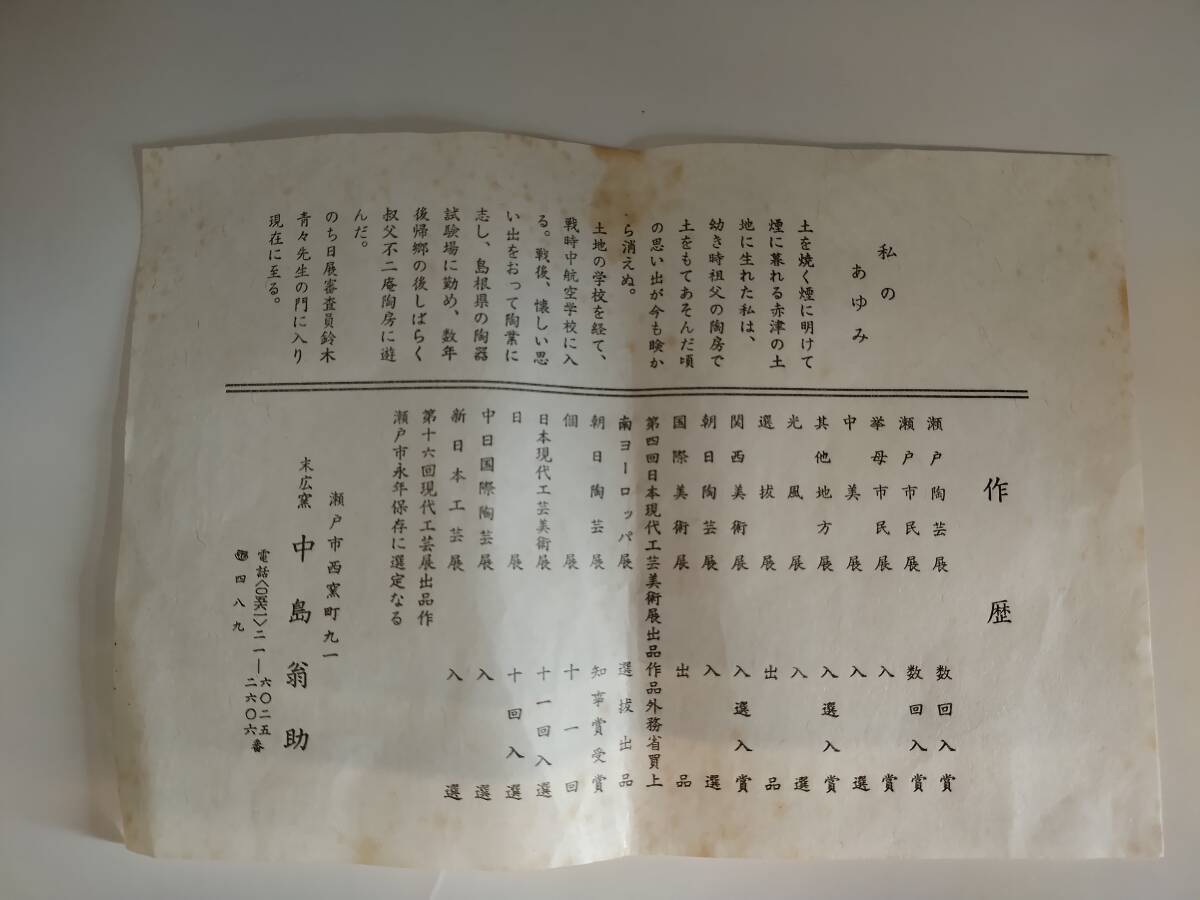 私の
あゆみ
土を焼く煙に明けて
煙に暮れる赤津の土
地に生れた私は、
幼き時祖父の陶房で
土をもてあそんだ頃
の思い出が今も瞼か
ら消えぬ。
土地の学校を経て、
戦時中航空学校に入
る。戦後、懐しい思
い出をおって陶業に
志し、島根県の陶器
試験場に勤め、数年
後帰郷の後しばらく
叔父不二庵陶房に遊
んだ。
のち日展審査員鈴木
青々先生の門に入り
現在に至る。
作歴
瀬戸陶芸展 数回入賞
瀬戸市民展 数回入賞
挙母市民展 入賞
中美展 入選
其他地方展 入選入賞
光風展 入選
選抜展 出品
関西美術展 入選入賞
朝日陶芸展 入選
国際美術展 出品
第四回日本現代工芸美術展出品作品外務省買上
南ヨーロッパ展 選抜出品
朝日陶芸展 知事賞受賞
個展 十一回
日本現代工芸美術展 十一回入選
日展 十回入選
中日国際陶芸展 入選
新日本工芸展 入選
第十六回現代工芸展出品作
瀬戸市永年保存に選定なる
瀬戸市西窯町九一
末広窯 中島翁助
電話〈〇五六一〉二一―六〇二五
二六〇六番
四八九